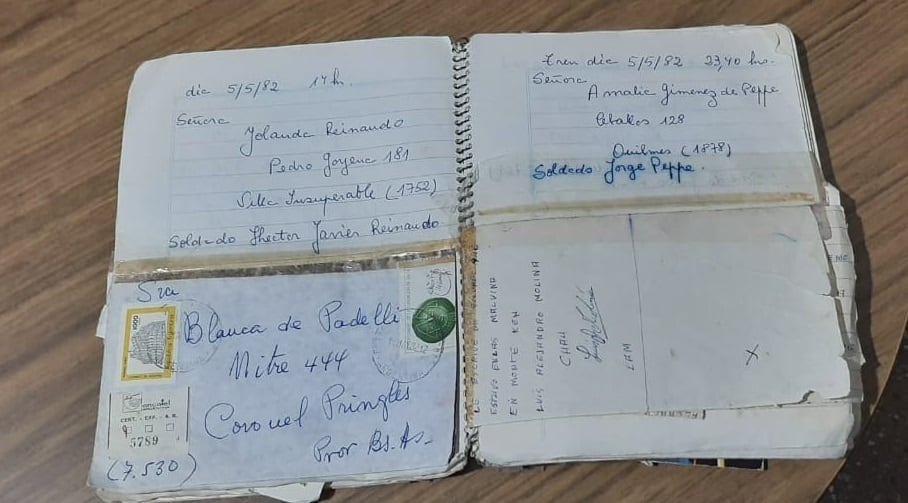 dia 5/5/82 17 hs.
Señora
Yolanda Reinaudo
Pedro Goyena 181
Villa Insuperable (1752)
Soldado Hector Javier Reinaudo
Sra
Blanca de Padelli
Mitre 444
Coronel Pringles
Prov Bs. As.
(7.530)
1000
Encotel
CERT. - EXP. - A. R.
5789
Tren dia 5/5/82 23,40 hs.
Señora
Amalia Gimenez de Peppe
Ceballos 128
Quilmes (1878)
Soldado Jorge Peppe.
ESTUVO EN LAS MALVINA
EN MONTE KEN
LUIS ALEJANDRO MOLINA
CHAU
LAM
X